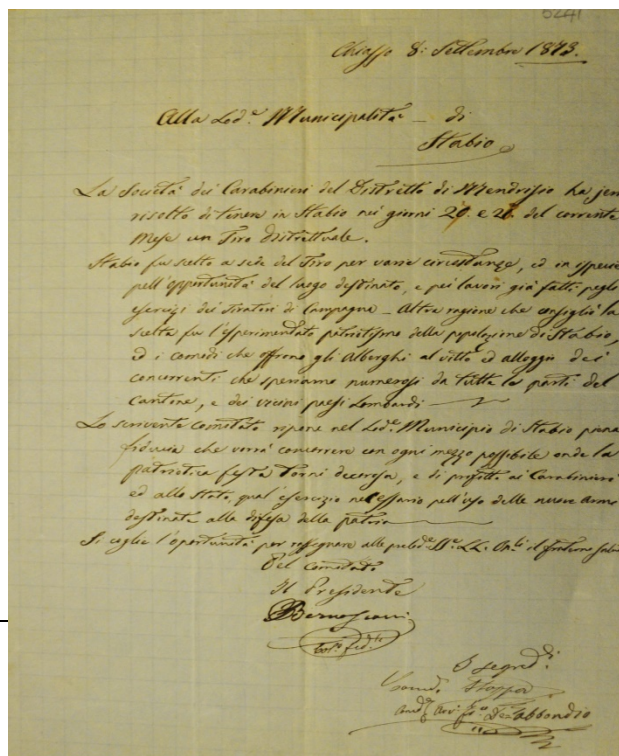 5241
Chiasso 8: Settembre 1873.
Alla Lod.e Municipalità - di
Stabio
La Società dei Carabinieri del Distretto di Mendrisio ha jeri
risolto di tenere in Stabio nei giorni 20. e 21. del corrente
Mese un Tiro distrettuale.
Stabio fu scelto a sede del Tiro per varie circostanze, ed in ispecie
pell'opportunità del luogo destinato, e pei lavori già fatti pegli
esercizi dei Tiratori di Campagna - Altra ragione che consigliò la
scelta fu l'esperimentato patriotismo della popolazione di Stabio,
ed i comodi che offrono gli Alberghi al vitto ed alloggio dei
concorrenti che speriamo numerosi da tutte le parti del
Cantone, e dei vicini paesi Lombardi
Lo scrivente Comitato ripone nel Lod.e Municipio di Stabio piena
fiducia che vorrà concorrere con ogni mezzo possibile onde la
patriotica festa torni decorosa, e di profitto ai Carabinieri
ed allo Stato, qual'esercizio necessario pell'uso delle nuove armi
destinate alla difesa della patria
Si coglie l'opportunità per rassegnare alle
Pel Comitato
Il Presidente
Bernasconi
I Segred.i
Stoppa
Avv.